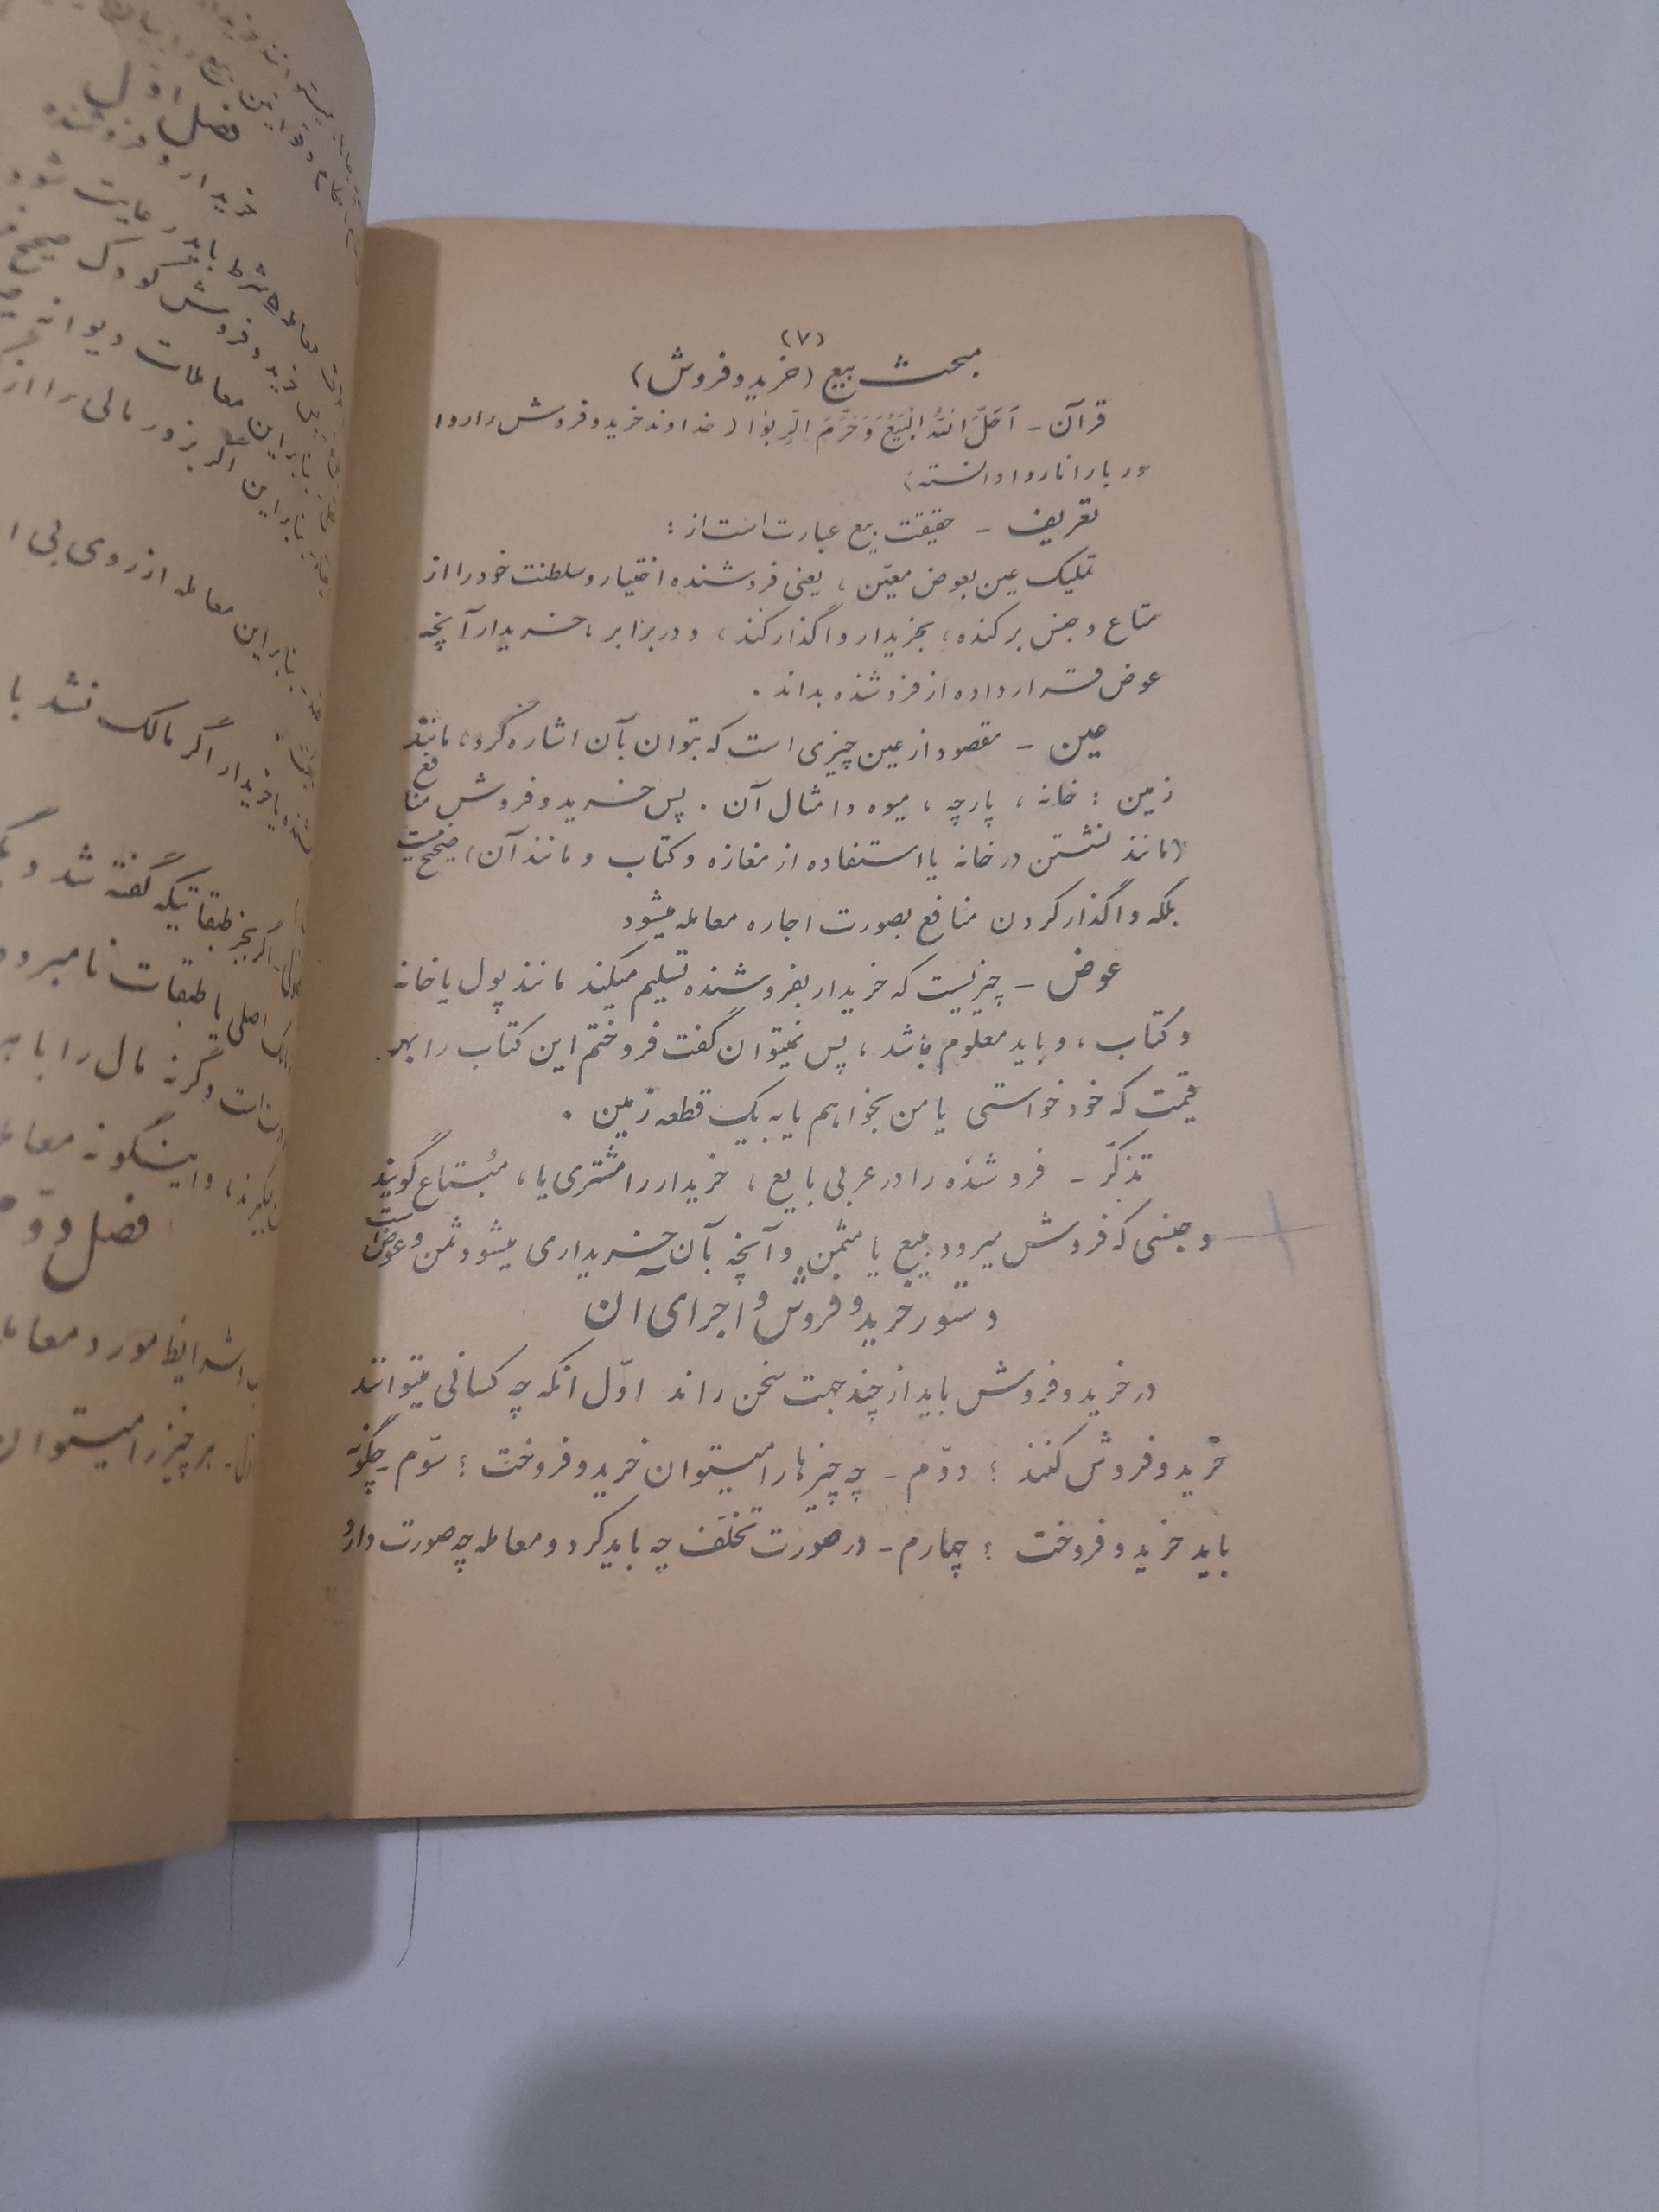 (۷)
مبحث بیع (خرید و فروش)
قرآن - اَحَلَّ اللهُ الْبَیْعَ وَ حَرَّمَ الرِّبوٰا (خداوند خرید و فروش را روا
و ربا را ناروا دانسته)
تعریف - حقیقت بیع عبارت است از :
تملیک عین بعوض معیّن ، یعنی فروشنده اختیار و سلطنت خود را از
متاع و جنس برکنده ، بخریدار واگذار کند ، و در برابر ، خریدار آنچه
عوض قرار داده از فروشنده بداند .
عین - مقصود از عین چیزی است که بتوان بآن اشاره کرد ، مانند
زمین : خانه ، پارچه ، میوه و امثال آن . پس خرید و فروش منافع
(مانند نشستن در خانه یا استفاده از مغازه و کتاب و مانند آن) صحیح نیست
بلکه واگذار کردن منافع بصورت اجاره معامله میشود
عوض - چیزیست که خریدار بفروشنده تسلیم میکند مانند پول یا خانه
و کتاب ، و باید معلوم باشد ، پس نمیتوان گفت فروختم این کتاب را بهر
قیمت که خود خواستی یا من بخواهم یا به یک قطعه زمین .
تذکّر - فروشنده را در عربی بایع ، خریدار را مشتری یا ، مُبتاع گویند
و جنسی که فروش میرود مبیع یا مثمن و آنچه بآن خریداری میشود ثمن و عوض است
دستور خرید و فروش و اجرای آن
در خرید و فروش باید از چند جهت سخن راند اوّل آنکه چه کسانی میتوانند
خرید و فروش کنند ؛ دوّم - چه چیزها را میتوان خرید و فروخت ؛ سوّم - چگونه
باید خرید و فروخت ؛ چهارم - در صورت تخلّف چه باید کرد و معامله چه صورت دارد
فصل اوّل
خریدار و فروشنده
بنابراین معاملات دیوانه
بنابراین اگر بزور مالی را از
بنابراین معامله از روی بی
یا خریدار اگر مالک نشد با
اگر بجز طبقاتیکه گفته شد و
اصلی یا طبقات نامبرده
وگرنه مال را با
و اینگونه
فصل دوّم
شرایط مورد معامله
هر چیز را میتوان